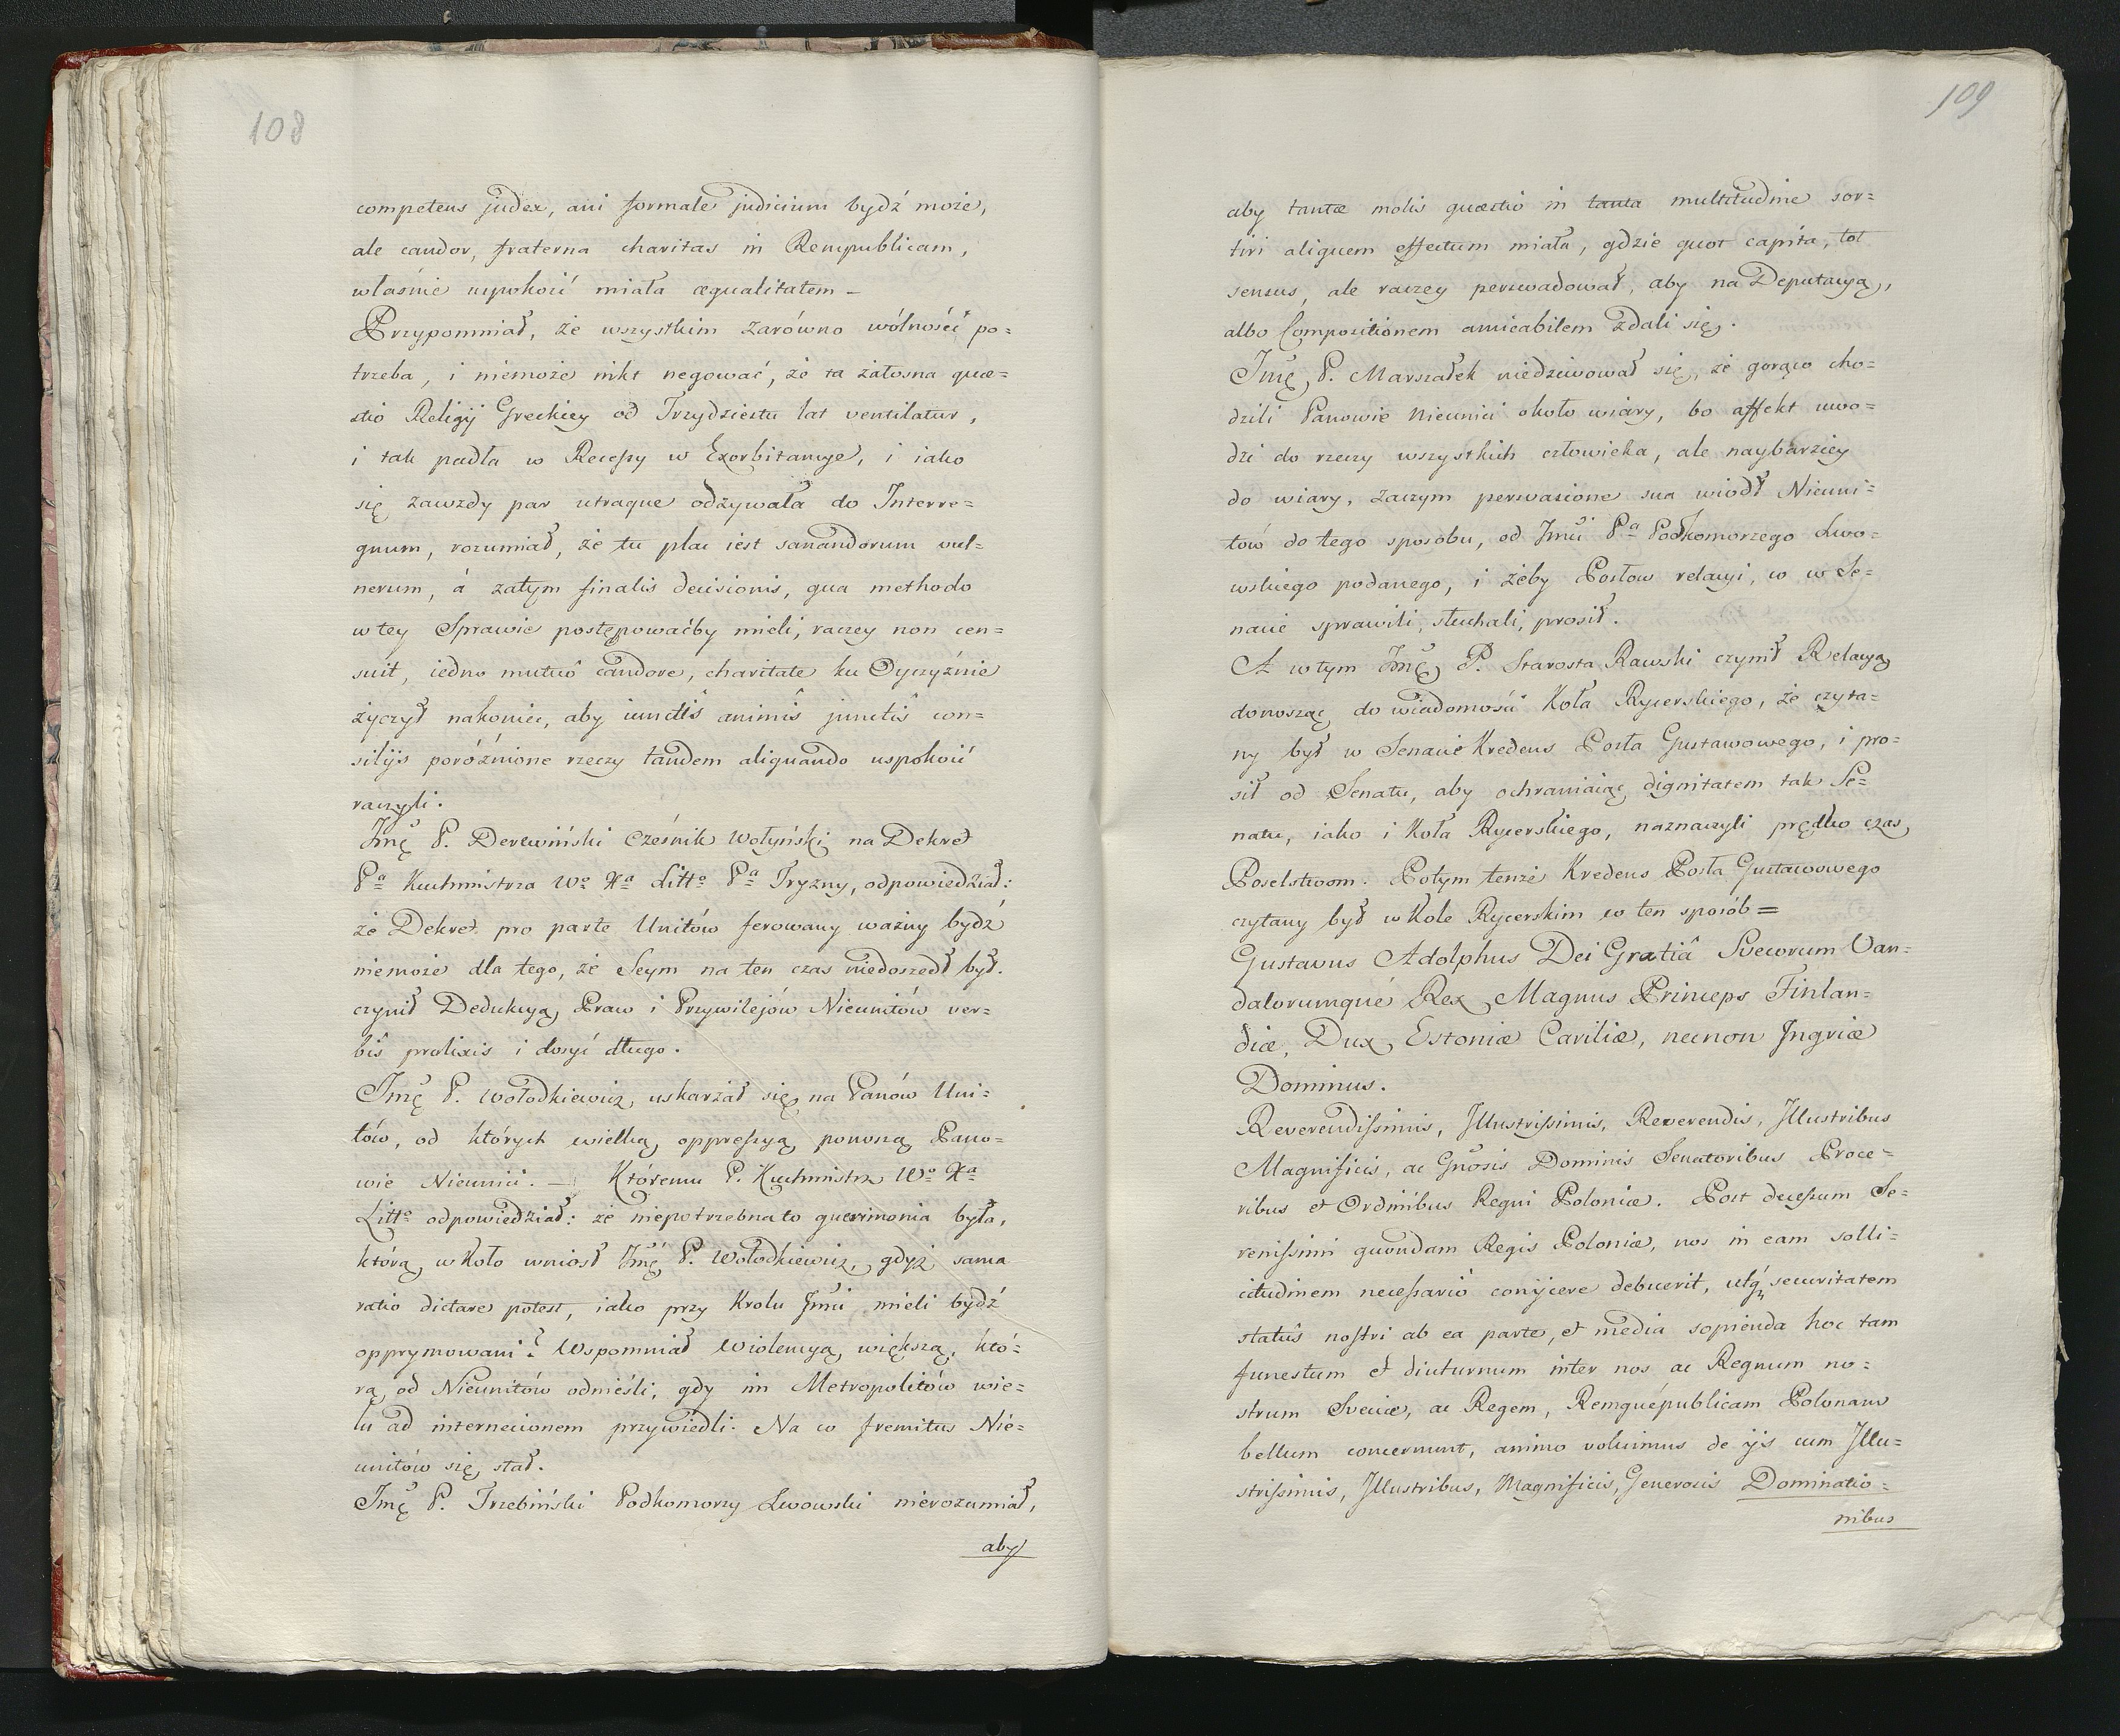 108
competens judex, ani formale judicium bydź może,
ale candor, fraterna charitas in Rempublicam,
właśnie uspokoić miała æqualitatem –
Przypomniał, że wszystkim zarówno wólność po=
trzeba, i niemoże nikt negować, że ta żałosna quæ=
stio Religij Greckiey od Trzydziestu lat ventilatur,
i tak padła w Recessy w Exorbitancye, i iako
się zawzdy par utraque odzywała do Interre=
gnum, rozumiał, że tu plac iest sanandorum vul=
nerum, á zatym finalis decisionis, qua methodo
w tey Sprawie postępowaćby mieli, raczey non cen=
suit, iedno mutuô candore, charitate ku Oyczyźnie
życzył nakoniec, aby iunctîs animîs junctîs con=
silijs poróżnione rzeczy tandem aliquando uspokoić
raczyli.
Jmę P. Derewiński Cześnik Wołyński na Dekret
Pa Kuchmistrza Wo Xa Litto Pa Tryzny, odpowiedział:
że Dekret pro parte Unitów ferowany ważny bydź
niemoże dla tego, że Seym na ten czas niedoszedł był.
czynił Dedukcyą Praw i Przywilejów Nieunitów ver=
bîs prolixis i dosyć długo.
Jmę P. Wołodkiewicz uskarżał się na Panów Uni=
tów, od których wielką oppressyą ponoszą Pano=
wie Nieunici. – Któremu P. Kuchmistrz Wo Xa
Litto odpowiedział: że niepotrzebna to querimonia była,
którą w Koło wniosł Jmę P. Wołodkiewicz, gdyż sama
ratio dictare potest, iako przy Krolu Jmci mieli bydź
opprymowani? Wspomniał Wiolencyą większą, któ=
rą od Nieunitów odnieśli, gdy im Metropolitów wie=
lu ad internecionem przywiedli. Na co fremitus Nie=
unitów się stał.
Jmę P. Trzebiński Podkomorzy Lwowski nierozumiał,
aby
109
aby tantæ molis quæstio in tanta multitudine sor=
tiri aliquem effectum miała, gdzie quot capita, tot
sensus, ale raczey perswadował, aby na Deputacyą,
albo Compositionem amicabilem zdali się.
Jmę P. Marszałek niedziwował się, że gorąco cho=
dzili Panowie Nieunici około wiary, bo affekt uwo=
dzi do rzeczy wszystkich człowieka, ale naybarziey
do wiary, zaczym perwasione sua wiodł Nieuni=
tów do tego sposobu, od Jmci Pa Podkomorzego Lwo=
wskiego podanego, i żeby Posłow relacyi, co w Se=
nacie sprawili, słuchali, prosił.
A w tym Jmę P. Starosta Rawski czynił Relacyą
donosząc do wiadomości Koła Rycerskiego, że czyta=
ny był w Senacie Kredens Posła Gustawowego, i pro=
sił od Senatu, aby ochraniaiąc dignitatem tak Se=
natu, iako i Koła Rycerskiego, naznaczyli prędko czas
Poselstwom. Potym tenże Kredens Posła Gustawowego
czytany był w Kole Rycerskim w ten sposób=
Gustavus Adolphus Dei Gratiâ Svecorum Van=
dalorumqué Rex, Magnus Princeps Finlan=
diæ, Dux Estoniæ Cariliæ, necnon Jngriæ
Dominus.
Reverendissimis, Jllustrissimis, Reverendis, Jllustribus
Magnificis, ac Gnôsis Dominis Senatoribus Proce=
ribus et Ordinibus Regni Poloniæ. Post decessum Se=
renissimi quondam Regis Poloniæ, nos in eam solli=
citudinem necessariò conijcere debuerit, utq́ securitatem
statûs nostri ab ea parte, et media sopienda hoc tam
funestum et diuturnum inter nos ac Regnum no=
strum Sveciæ, ac Regem, Remquépublicam Polonam
bellum concernunt, animo volvimus de ijs cum Jllu=
strissimis, Jllustribus, Magnificis, Generosis Dominatio=
nibus